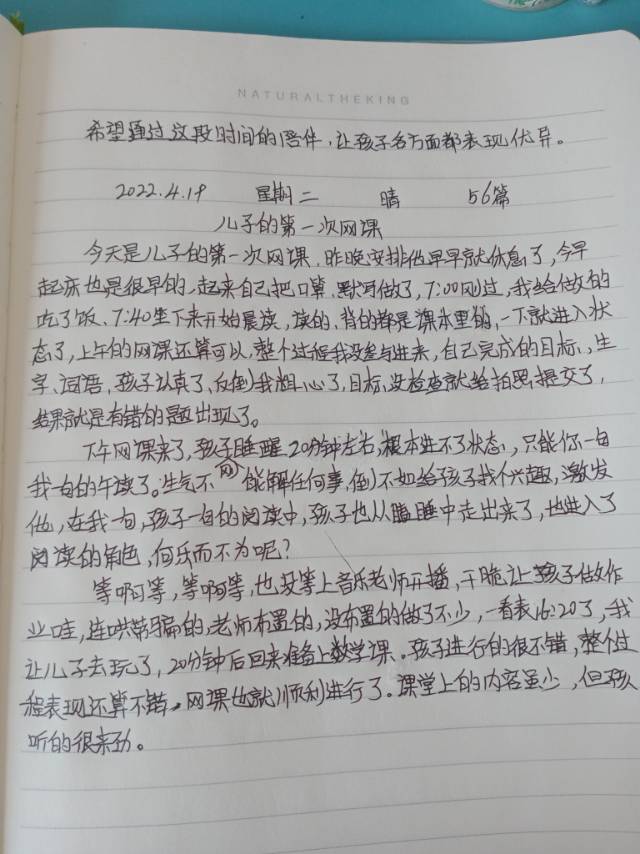 NATURALTHEKING
希望通过这段时间的陪伴，让孩子各方面都表现优异。
2022.4.19 星期二 晴 56篇
儿子的第一次网课
今天是儿子的第一次网课，昨晚安排他早早就休息了，今早
起床也是很早的，起来自己把口算、默写做了，7:00刚过，我给做的
吃了饭、7:40坐下来开始晨读，读的、背的都是课本里的，一下就进入状
态了，上午的网课还算可以，整个过程我没参与进来，自己完成的目标、生
字、词语，孩子认真了，反倒我粗心了，目标没检查就给拍照提交了，
结果就是有错的题出现了。
下午网课来了，孩子睡醒20分钟左右，根本进不了状态，只能你一句
我一句的午读了。生气不能解任何事，倒不如给孩子找个兴趣，激发
他，在我一句，孩子一句的阅读中，孩子也从瞌睡中走出来了，也进入了
阅读的角色，何乐而不为呢？
等啊等，等啊等，也没等上音乐老师开播，干脆让孩子做作
业哇，连哄带骗的，老师布置的，没布置的做了不少，一看表16:20了，我
让儿子去玩了，20分钟后回来准备上数学课。孩子进行的很不错，整个过
程表现还算不错。网课也就顺利进行了。课堂上的内容虽少，但孩
听的很来劲。